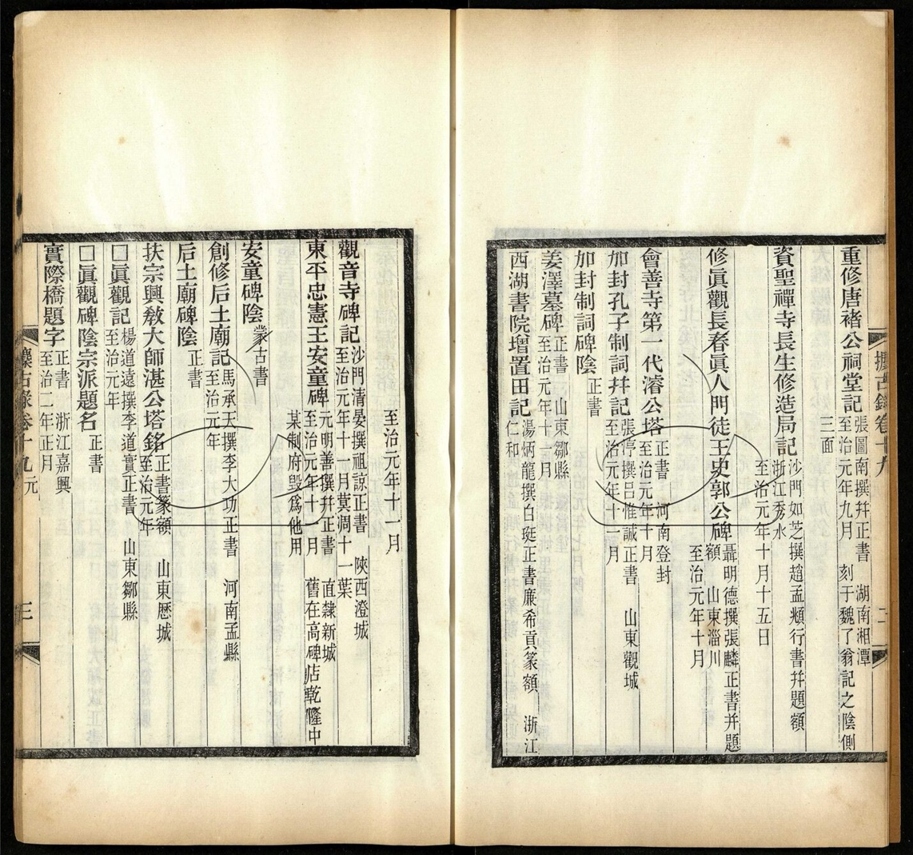 重修唐褚公祠堂記張圖南撰幷正書　湖南湘潭
至治元年九月　刻于魏了翁記之陰側
三面
資聖禪寺長生修造局記沙門如芝撰趙孟頫行書幷題額
浙江秀水
至治元年十月十五日
修眞觀長春眞人門徒王史郭公碑聶明德撰張麟正書幷題
額　山東淄川
至治元年十月
會善寺第一代濬公塔正書　河南登封
至治元年十月
加封孔子制詞幷記張撰呂惟誠正書　山東觀城
至治元年十一月
加封制詞碑陰正書
姜澤墓碑正書　山東鄒縣
至治元年十一月
西湖書院增置田記湯炳龍撰白珽正書廉希貢篆額　浙江
仁和
攗古錄卷十九
二
至治元年十一月
觀音寺碑記沙門清晏撰祖諒正書　陝西澄城
至治元年十一月蓂凋十一葉
東平忠憲王安童碑元明善撰幷正書　直隸新城
至治元年十月　舊在高碑店乾隆中
某制府毁爲他用
安童碑陰蒙古書
創修后土廟記馬承天撰李大功正書　河南孟縣
至治元年
后土廟碑陰正書
扶宗興敎大師湛公塔銘正書篆額　山東歷城
至治元年
□眞觀記楊道遠撰李道實正書　山東鄒縣
至治元年
□眞觀碑陰宗派題名正書
實際橋題字正書　浙江嘉興
至治二年正月
攗古錄卷十九　元
三